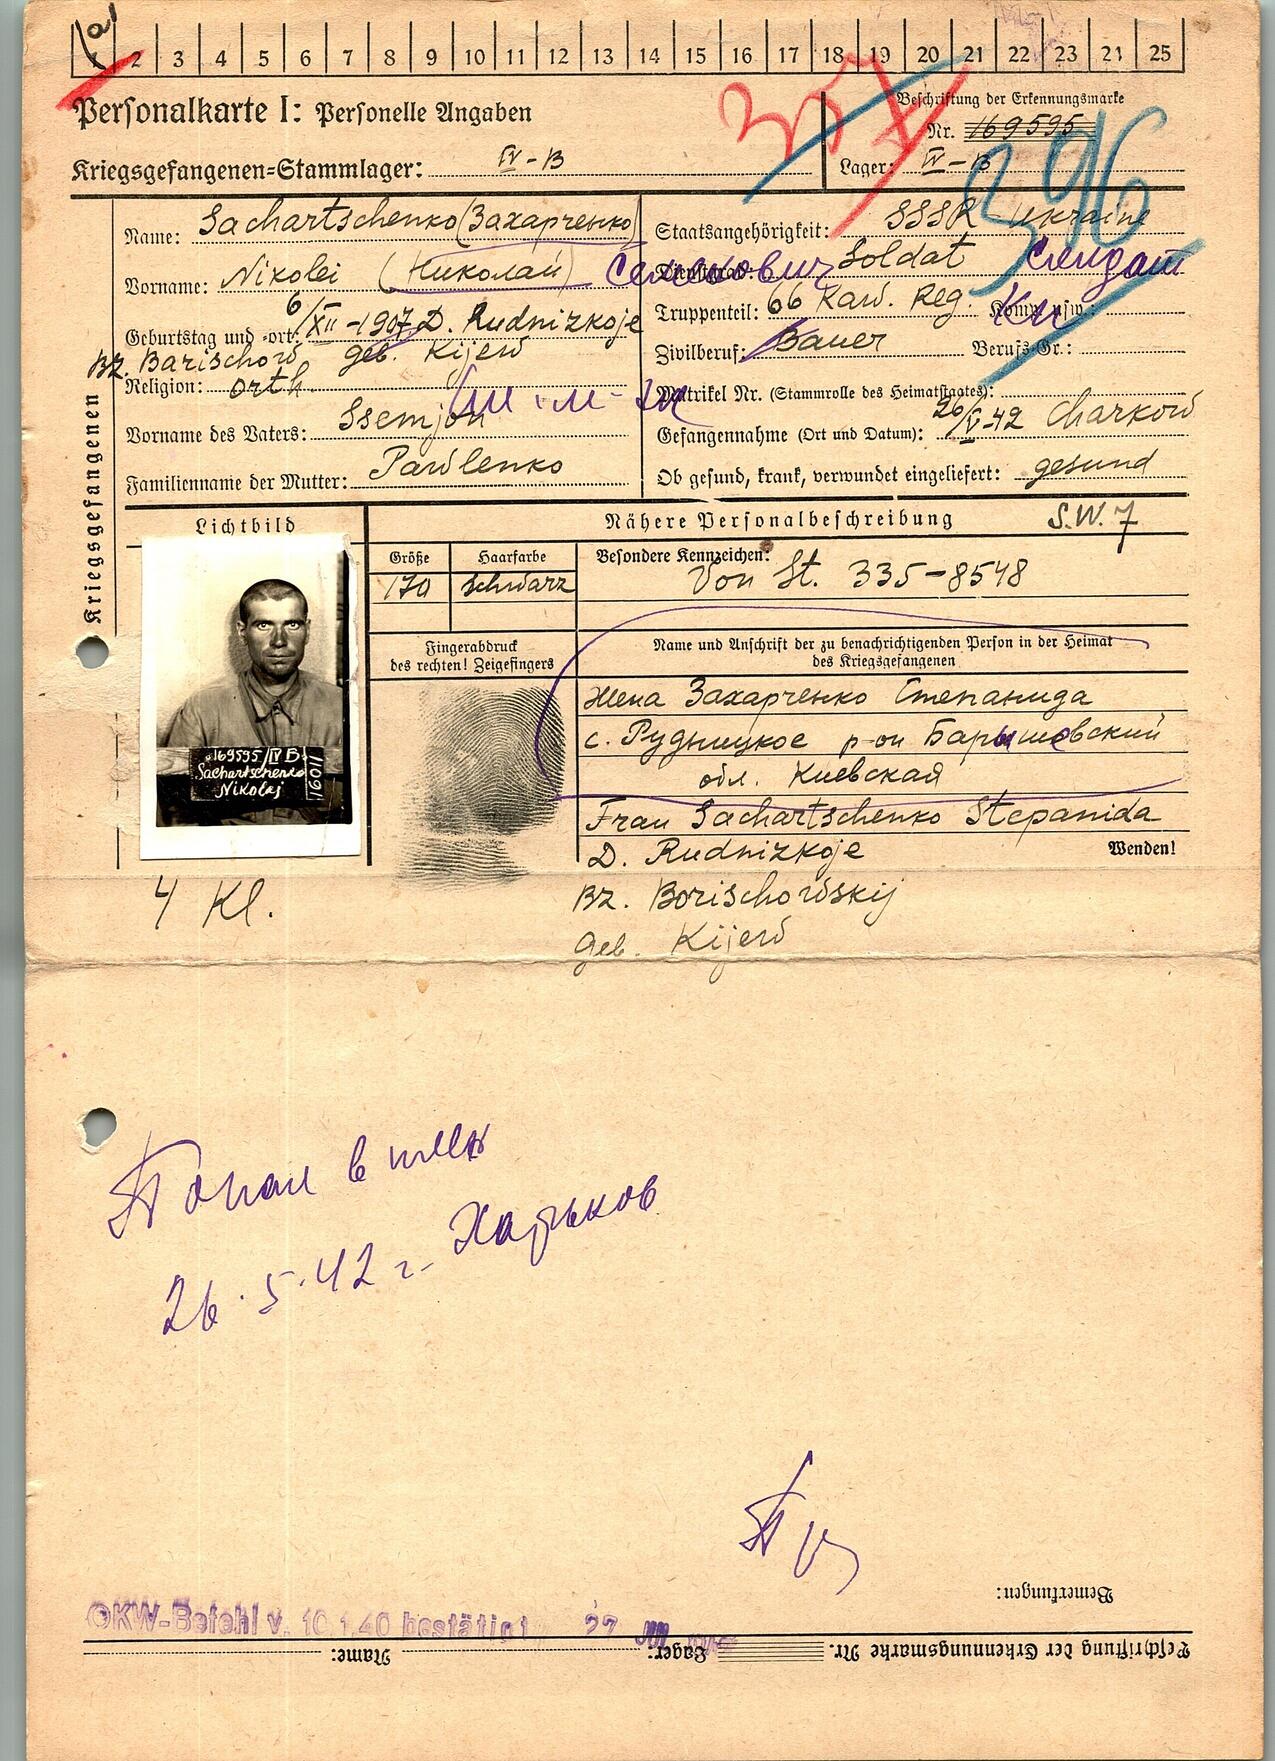 2 3 4 5 6 7 8 9 10 11 12 13 14 15 16 17 18 19 20 21 22 23 21 25
Personalkarte I: Personelle Angaben
Beschriftung der Erkennungsmarke
Nr. 169595
Kriegsgefangenen-Stammlager: IV-B
Lager: IV-B
357
396
Name: Sachartschenko (Захарченко)
Vorname: Nikolei (Николай) Семенович
Geburtstag und -ort: 6/XII-1907 D. Rudnizkoje
Bz. Barischow geb. Kijew
Religion: orth.
Vorname des Vaters: Ssemjon
Familienname der Mutter: Pawlenko
Staatsangehörigkeit: SSSR Ukraine
Dienstgrad: Soldat
Truppenteil: 66 Kaw. Reg. Komp. usw.:
Zivilberuf: Bauer Berufs-Gr.:
Matrikel Nr. (Stammrolle des Heimatstaates):
Gefangennahme (Ort und Datum): 26/V-42 Charkow
Ob gesund, krank, verwundet eingeliefert: gesund
Kriegsgefangenen
Lichtbild
Nähere Personalbeschreibung S.W. 7
Größe Haarfarbe
170 schwarz
Besondere Kennzeichen:
Von St. 335-8548
Fingerabdruck
des rechten! Zeigefingers
Name und Anschrift der zu benachrichtigenden Person in der Heimat
des Kriegsgefangenen
Жена Захарченко Степанида
с. Рудницкое р-он Барышевский
обл. Киевская
Frau Sachartschenko Stepanida
D. Rudnizkoje
Wenden!
Bz. Borischowskij
geb. Kijew
169595/IV B
Sachartschenko
Nikolaj
16011
4 Kl.
Попал в плен
26.5.42 г. Харьков
Bemerkungen:
OKW-Befehl v. 10.1.40 bestätigt
Name: Lager: Beschriftung der Erkennungsmarke Nr.